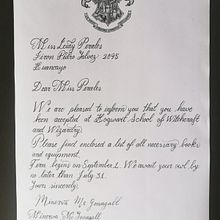 Miss Leidy Perales
Jiron Pedro Galvez 2095
Huancayo
Dear Miss Perales
We are pleased to inform you that you have
been accepted at Hogwart School of Witchcraft
and Wizardry.
Please find enclosed a list of all necessary books
and equipment.
Term begins on September 1. We await your owl by
no later than July 31.
Yours sincerely,
Minerva Mc Gonagall
Minerva Mc Gonagall